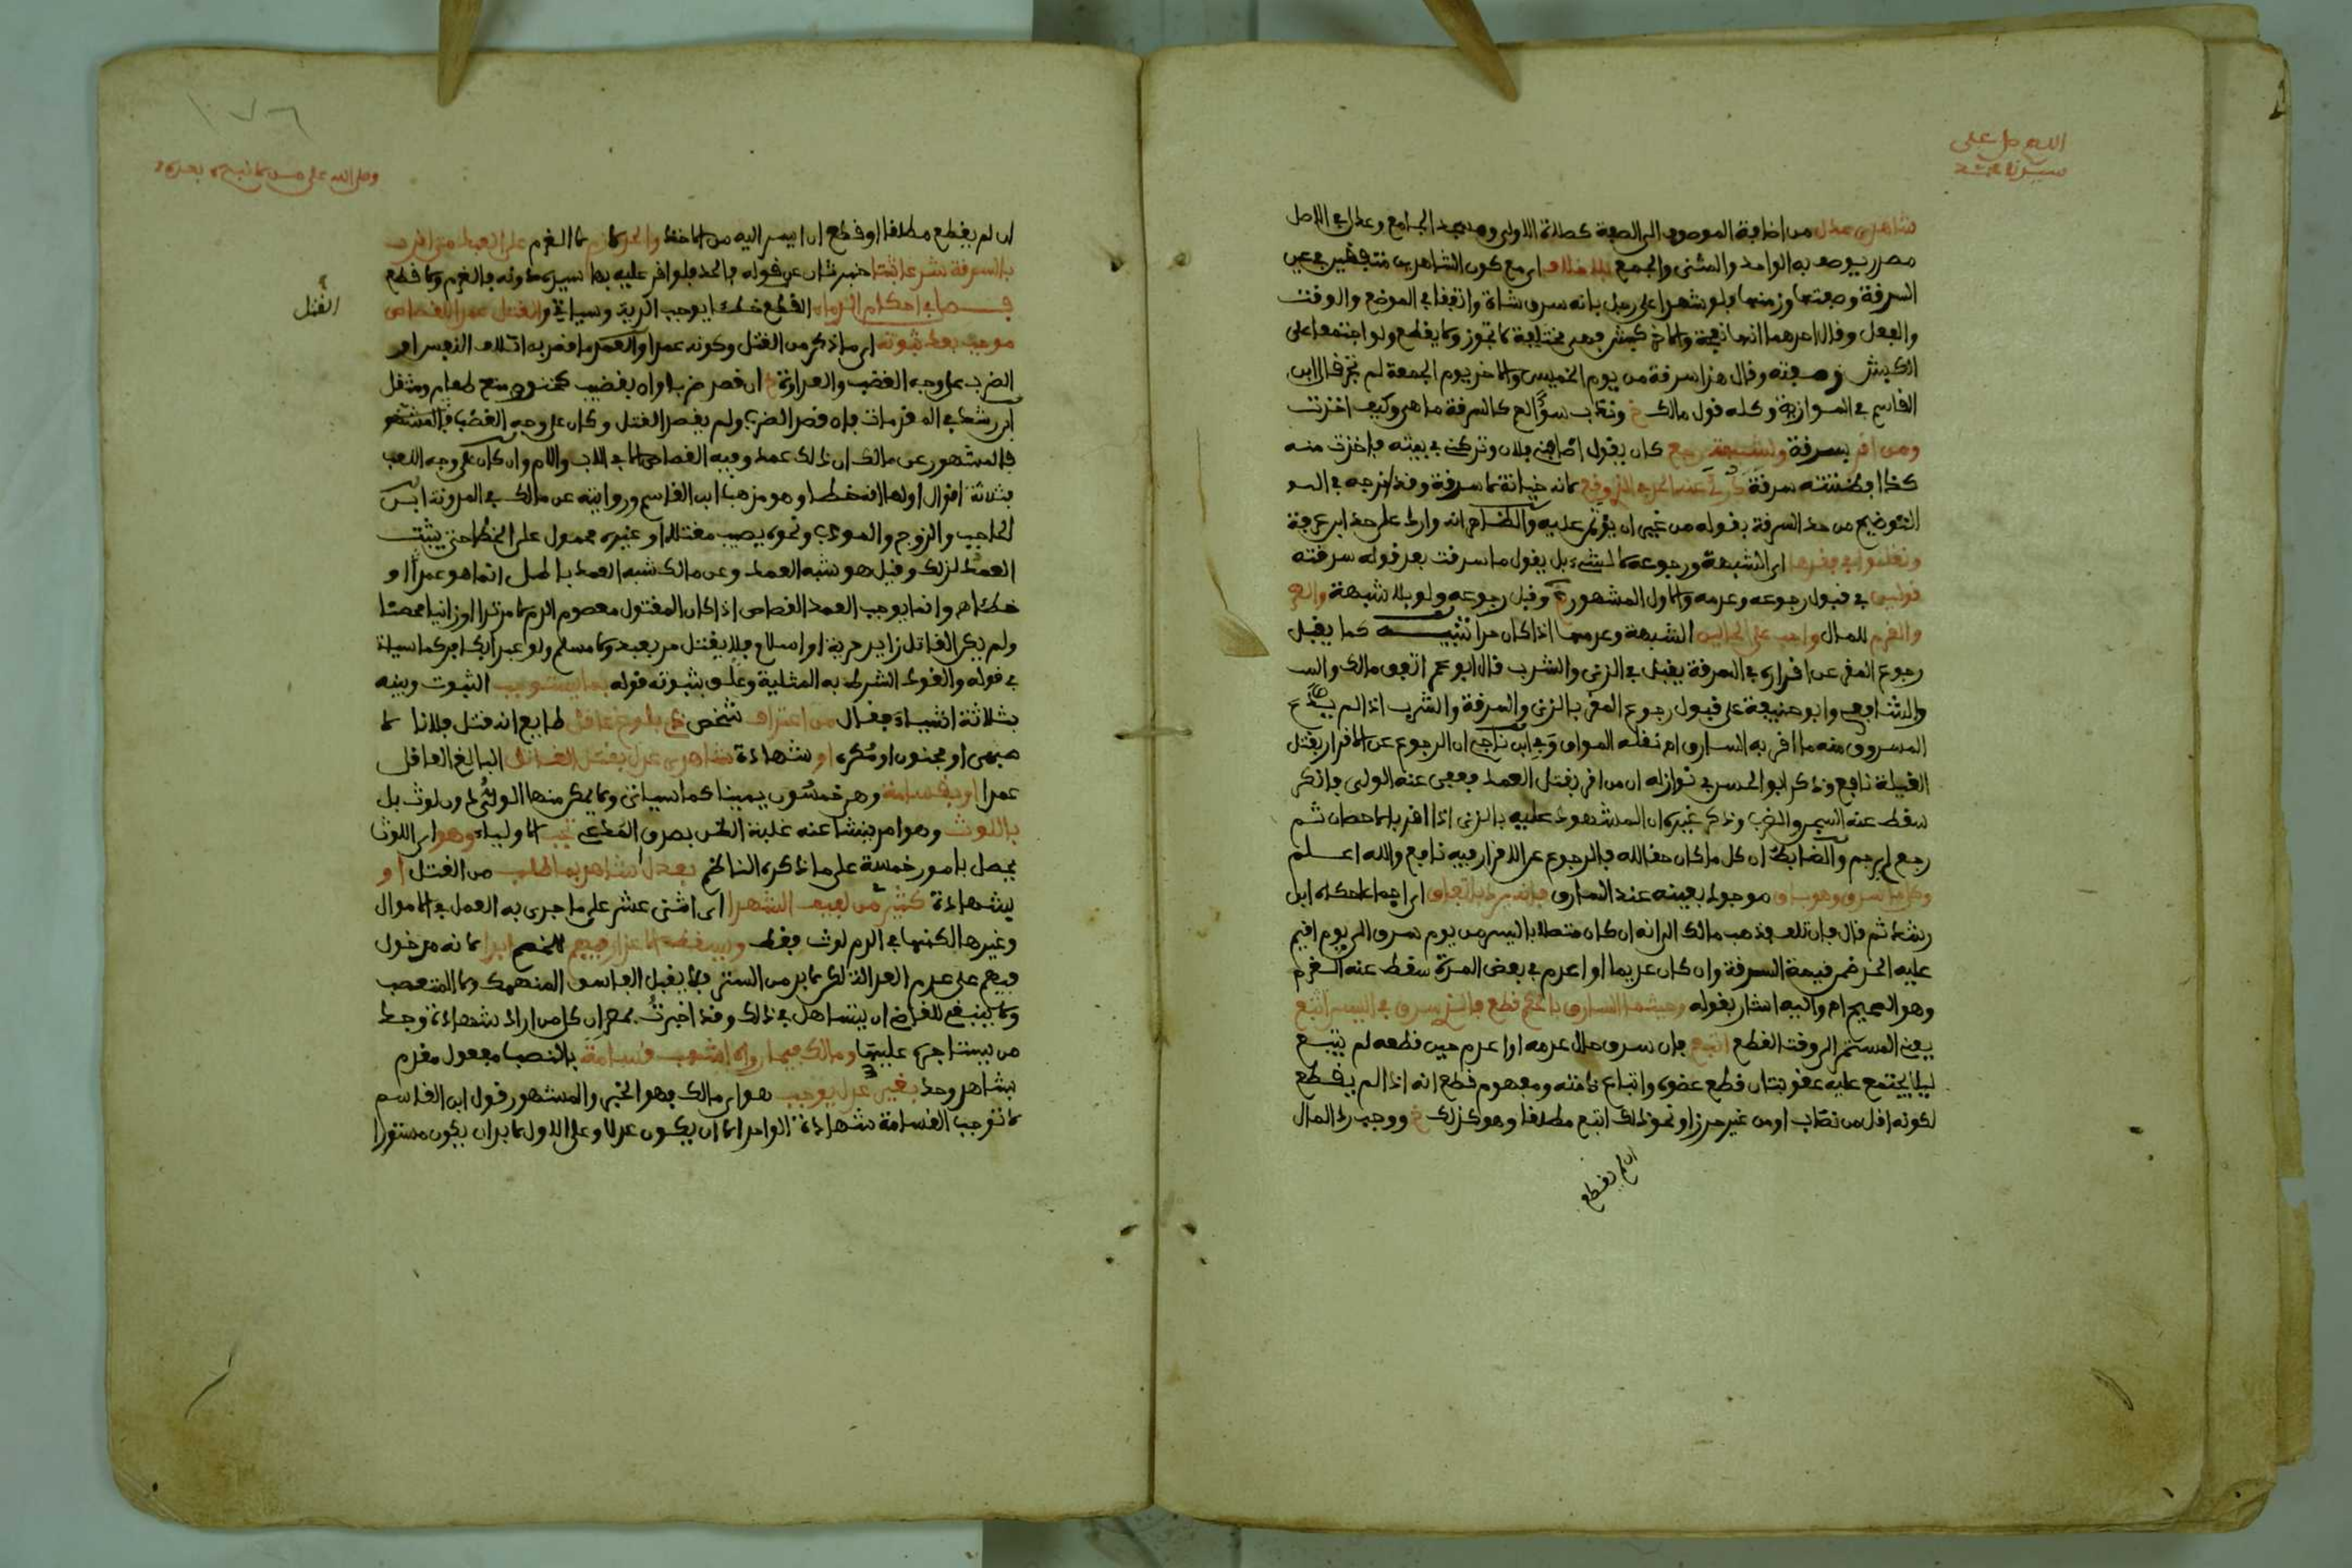 اللهم صل على
سيدنا محمد
شاهدي عدل من اضافة الموصوف الى الصفة كصلاة الاولى ومسجد الجامع وعدل في الاصل
مصدر يوصف به الواحد والمثنى والجمع بلا خلاف اي مع كون الشاهدين متفقين في عين
السرقة وصفتها وزمنها فلو شهدا على رجل بانه سرق شاة واتفقا في الموضع والوقت
والفعل وقال احدهما انها نعجة والاخر كبش فهي مختلفة لا تجوز ولا يقطع ولو اجتمعا على
الكبش وصفته وقال هذا سرقه من يوم الخميس والاخر يوم الجمعة لم تجز قال ابن
القاسم في الموازية وكله قول مالك
ومن اقر بسرقة وشبهة رجع كان يقول اضافني فلان وتركني في بيته فاخذت منه
كذا فظننته سرقة درئ عنه الحد لانه خيانة لا سرقة
التوضيح من حد السرقة بقوله من غير ان يؤتمن عليه والظاهر انه وارد على حد ابن عرفة
ونقلوا في فقدها اي الشبهة ورجوعه لا لشيء بل يقول ما سرقت بعد قوله سرقته
قولين في قبول رجوعه وعدمه والاول المشهور وقيل رجوعه ولو بلا شبهة
والغرم للمال واجب على الحالين الشبهة وعدمها اذا كان حرا تنبيه كما يقبل
رجوع المقر عن اقراره في السرقة يقبل في الزنى والشرب قال ابو عمر اتفق مالك
والشافعي وابو حنيفة على قبول رجوع المقر بالزنى والسرقة والشرب اذا لم يدع
المسروق منه ما اقر به السارق اه نقله المواق وفي ابن ناجي ان الرجوع عن الاقرار بقتل
الغيلة نافع وذكر ابو الحسن في نوازله ان من اقر بقتل العمد فعفي عنه الولي فانكر
سقط عنه السجن والضرب وذكر غيره ان المشهود عليه بالزنى اذا اقر بالاحصان ثم
رجع لم يرجم والضابط ان كل ما كان حقا لله فالرجوع عن الاقرار فيه نافع والله اعلم
وكل ما سرق وهو باق موجود بعينه عند السارق فانه يرد باتفاق اي اجماعا حكاه ابن
رشد ثم قال فان تلف فذهب مالك الى انه ان كان متصلا باليسر من يوم سرق الى يوم اقيم
عليه الحد ضمن قيمة السرقة وان كان عديما او اعدم في بعض المدة سقط عنه الغرم
وهو الصحيح اه واليه اشار بقوله وحيثما السارق بالحكم قطع فالذي سرق في اليسر اتبع
يعني المستمر الى وقت القطع اتبع فان سرق حال عدمه او اعدم حين قطعه لم يتبع
ليلا يجتمع عليه عقوبتان قطع عضوه واتباع ذمته ومفهوم قطع انه اذا لم يقطع
لكونه اقل من نصاب او من غير حرز او نحو ذلك اتبع مطلقا وهو كذلك خ ووجب رد المال
ان لم يقطع
١٧٦
ان لم يقطع مطلقا او قطع ان ايسر اليه من الاخذ والحد لا لا الغرم على العبد متى اقر
بالسرقة شرعا ثبتا خبر ثان عن قوله والحد فلو اقر عليه بها سيده دونه فالغرم ولا قطع
فصل في احكام الدماء القطع خطا يوجب الدية وسياتي والقتل عمدا للقصاص
القتل
موجب بعد ثبوته اي ما ذكر من القتل وكونه عمدا والعمد ما قصد به اتلاف النفس او
الضرب على وجه الغضب والعداوة خ ان قصد ضربا وان بقضيب كخنق ومنع طعام ومثقل
ابن رشد في المقدمات فان قصد الضرب ولم يقصد القتل وكان على وجه الغضب
فالمشهور عن مالك ان ذلك عمد وفيه القصاص الا في الاب والام وان كان على وجه اللعب
فثلاثة اقوال اولها انه خطا وهو مذهب ابن القاسم وروايته عن مالك في المدونة ابن
الحاجب والزوج والمودب ونحوه يصيب مقتلا او غيره محمول على الخطا حتى يثبت
العمد لذلك وقيل هو شبه العمد وعن مالك شبه العمد باطل انما هو عمد او
خطا اه وانما يوجب العمد القصاص اذا كان المقتول معصوم الدم لا مرتدا او زانيا محصنا
ولم يكن القاتل زايد حرية او اسلام فلا يقتل حر بعبد ولا مسلم ولو عبدا بكافر كما سياتي
في قوله والقود الشرط به المثلية وعلق بثبوته قوله بما يستوجب الثبوت وبينه
بثلاثة اشياء فقال من اعتراف شخص ذي بلوغ عاقل طايع انه قتل فلانا لا
صبي او مجنون او مكره او شهادة شاهدي عدل بقتل القاتل البالغ العاقل
عمدا او بقسامة وهي خمسون يمينا كما سياتي ولا يمكن منها الولي دون لوث بل
باللوث وهو امر ينشا عنه غلبة الظن بصدق المدعي الاولياء وهو اي اللوث
يحصل بامور خمسة على ما ذكره الناظم بعدل شاهد بما طلب من القتل او
بشهادة كثير من لفيف الشهدا اي اثنى عشر على ما جرى به العمل في الاموال
وغيرها لكنها في الدم لوث فقط ويسقط الاعذار فيهم للخصم ابدا لانه مدخول
فيهم على عدم العدالة لكن لا بد من الستر فلا يقبل الفاسق المنهمك ولا المتعصب
ولا ينبغي للقاضي ان يتساهل في ذلك وقد اخبرت بمصر ان كل من اراد شهادة وجد
من يستاجره عليها ومالك فيما رواه اشهب قسامة بالنصب مفعول مقدم
بشاهد وحد بغير عدل يوجب هو اي مالك فهو الخبر والمشهور قول ابن القاسم
لا توجب القسامة شهادة الواحد الا ان يكون عدلا وعلى الاول لا بد ان يكون مستورا